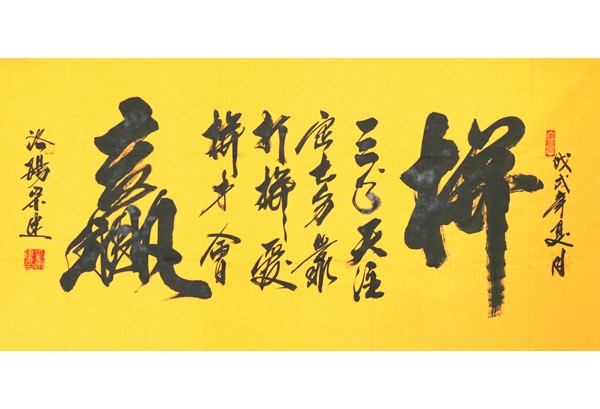 戊戌年夏月
拼
三分天注
定七分靠
打拼爱
拼才會
赢
洛陽